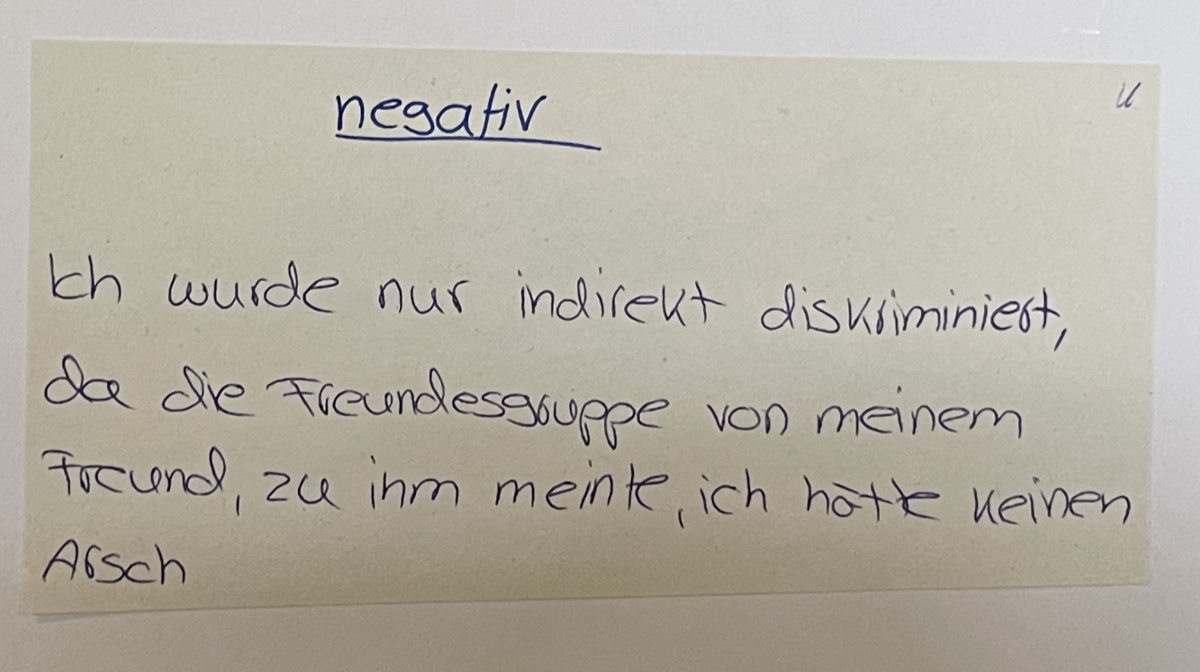 negativ
u
Ich wurde nur indirekt diskriminiert,
da die Freundesgruppe von meinem
Freund, zu ihm meinte, ich hätte keinen
Arsch